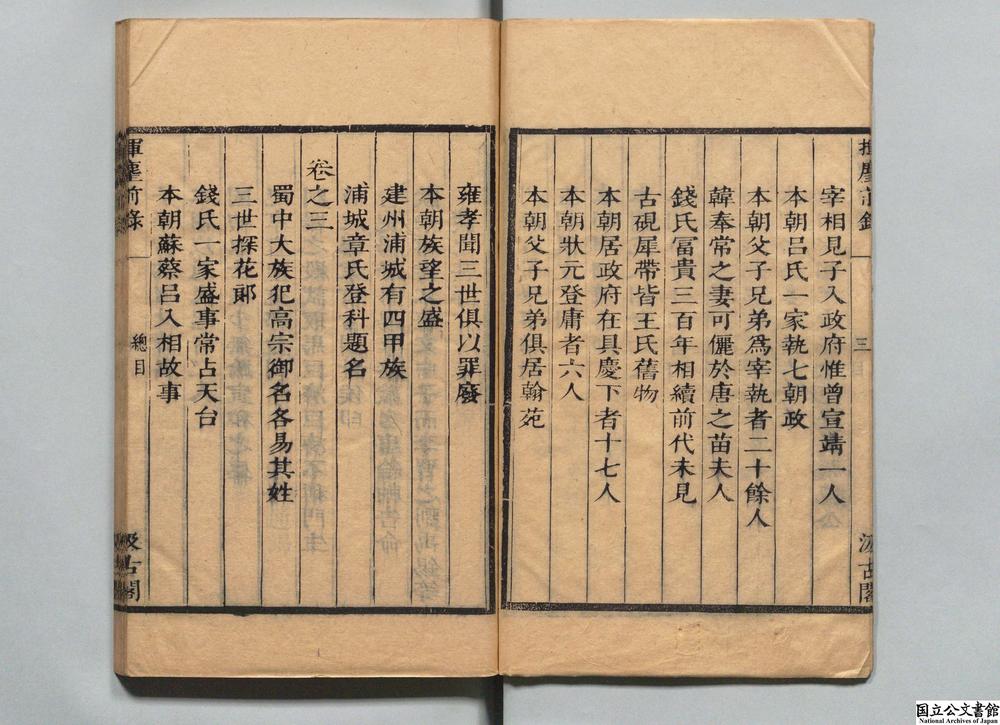 宰相見子入政府惟曾宣靖一人
本朝呂氏一家執七朝政
本朝父子兄弟爲宰執者二十餘人
韓奉常之妻可儷於唐之苗夫人
錢氏冨貴三百年相續前代未見
古硯犀帶皆王氏舊物
本朝居政府在具慶下者十七人
本朝狀元登庸者六人
本朝父子兄弟俱居翰苑
三
汲古閣
雍孝聞三世俱以罪廢
本朝族望之盛
建州浦城有四甲族
浦城章氏登科題名
卷之三
蜀中大族犯高宗御名各易其姓
三世探花郞
錢氏一家盛事常占天台
本朝蘇蔡呂入相故事
揮麈前錄
總目
汲古閣
国立公文書館
National Archives of Japan